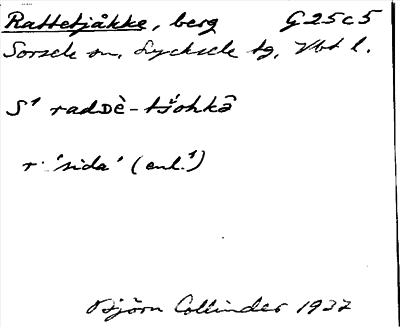 Rattetjåkke, berg G25c5
Sorsele sn, Lycksele tg, Vbt l.
S¹ radᴅè-tšohkâ
r. 'sida' (enl.¹)
Björn Collinder 1937